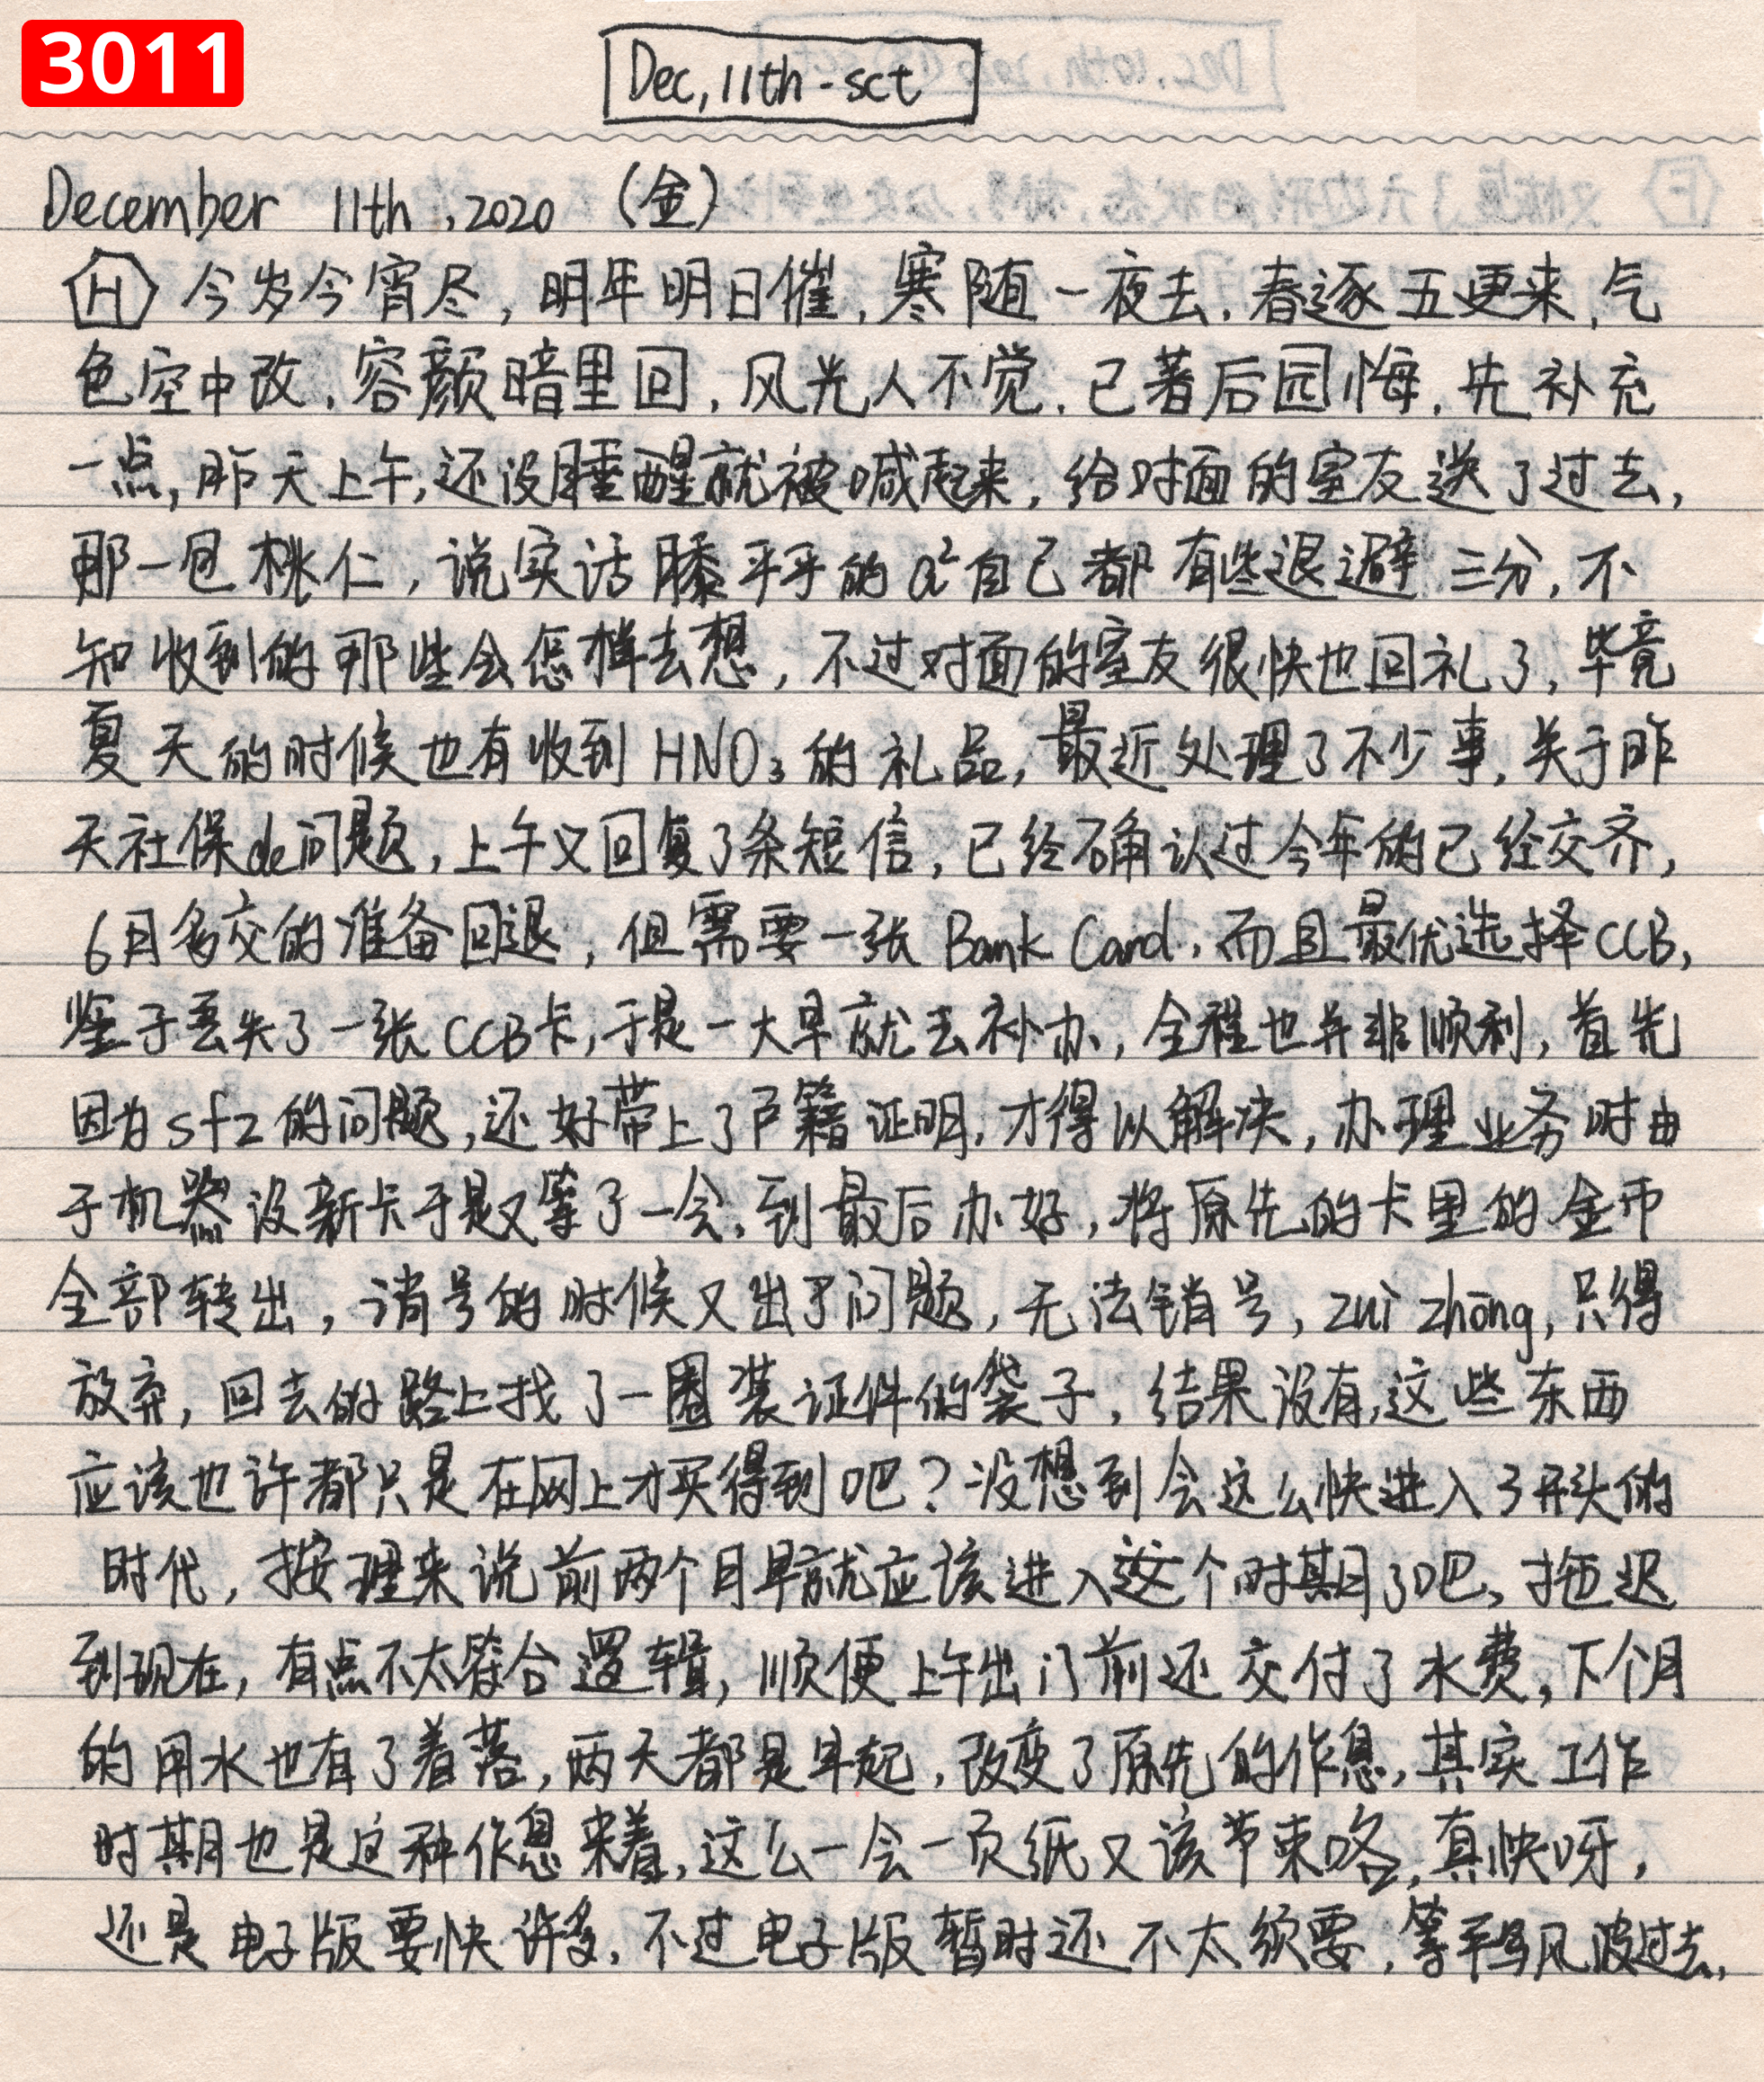 3011
Dec, 11th - sct
December 11th, 2020 (金)
H 今岁今宵尽, 明年明日催, 寒随一夜去, 春逐五更来, 气
色空中改, 容颜暗里回, 风光人不觉, 已著后园悔, 先补充
一点, 昨天上午, 还没睡醒就被喊起来, 给对面的室友送了过去,
那一包桃仁, 说实话膝平平的 a²自己都有些退避三分, 不
知收到的那些会怎样去想, 不过对面的室友很快也回礼了, 毕竟
夏天的时候也有收到HNO₃的礼品, 最近处理了不少事, 关于昨
天社保de问题, 上午又回复了条短信, 已经确认过今年的已经交齐,
6月多交的准备回退, 但需要一张 Bank Card, 而且最优选择CCB,
鉴于丢失了一张CCB卡, 于是一大早就去补办, 全程也并非顺利, 首先
因为sfz的问题, 还好带上了户籍证明, 才得以解决, 办理业务时由
于机器没新卡于是又等了一会, 到最后办好, 将原先的卡里的金币
全部转出, 消号的时候又出了问题, 无法销号, zuì zhōng, 只得
放弃, 回去的路上找了一圈装证件的袋子, 结果没有, 这些东西
应该也许都只是在网上才买得到吧? 没想到会这么快进入了开头的
时代, 按理来说前两个月早就应该进入这个时期了吧, 拖迟
到现在, 有点不太符合逻辑, 顺便上午出门前还交付了水费, 下个月
的用水也有了着落, 两天都是早起, 改变了原先的作息, 其实工作
时期也是这种作息来着, 这么一会一页纸又该节束咯, 真快呀,
还是电子版要快许多, 不过电子版暂时还不太须要, 等风波过去,